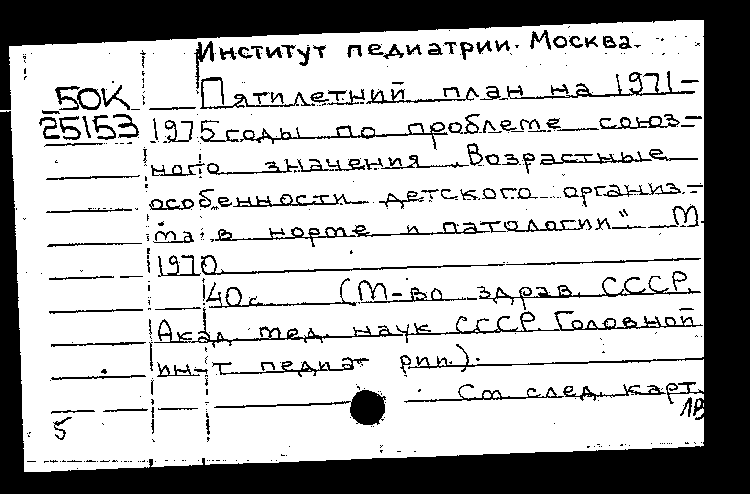 Институт педиатрии. Москва.
БОК
25153
Пятилетний план на 1971-
1975 годы по проблеме союз-
ного значения „Возрастные
особенности детского организ-
ма в норме и патологии". М.
1970.
40с. (М-во здрав. СССР.
Акад. мед. наук СССР. Головной
ин-т педиат рии.).
См. след. карт.
1В
5